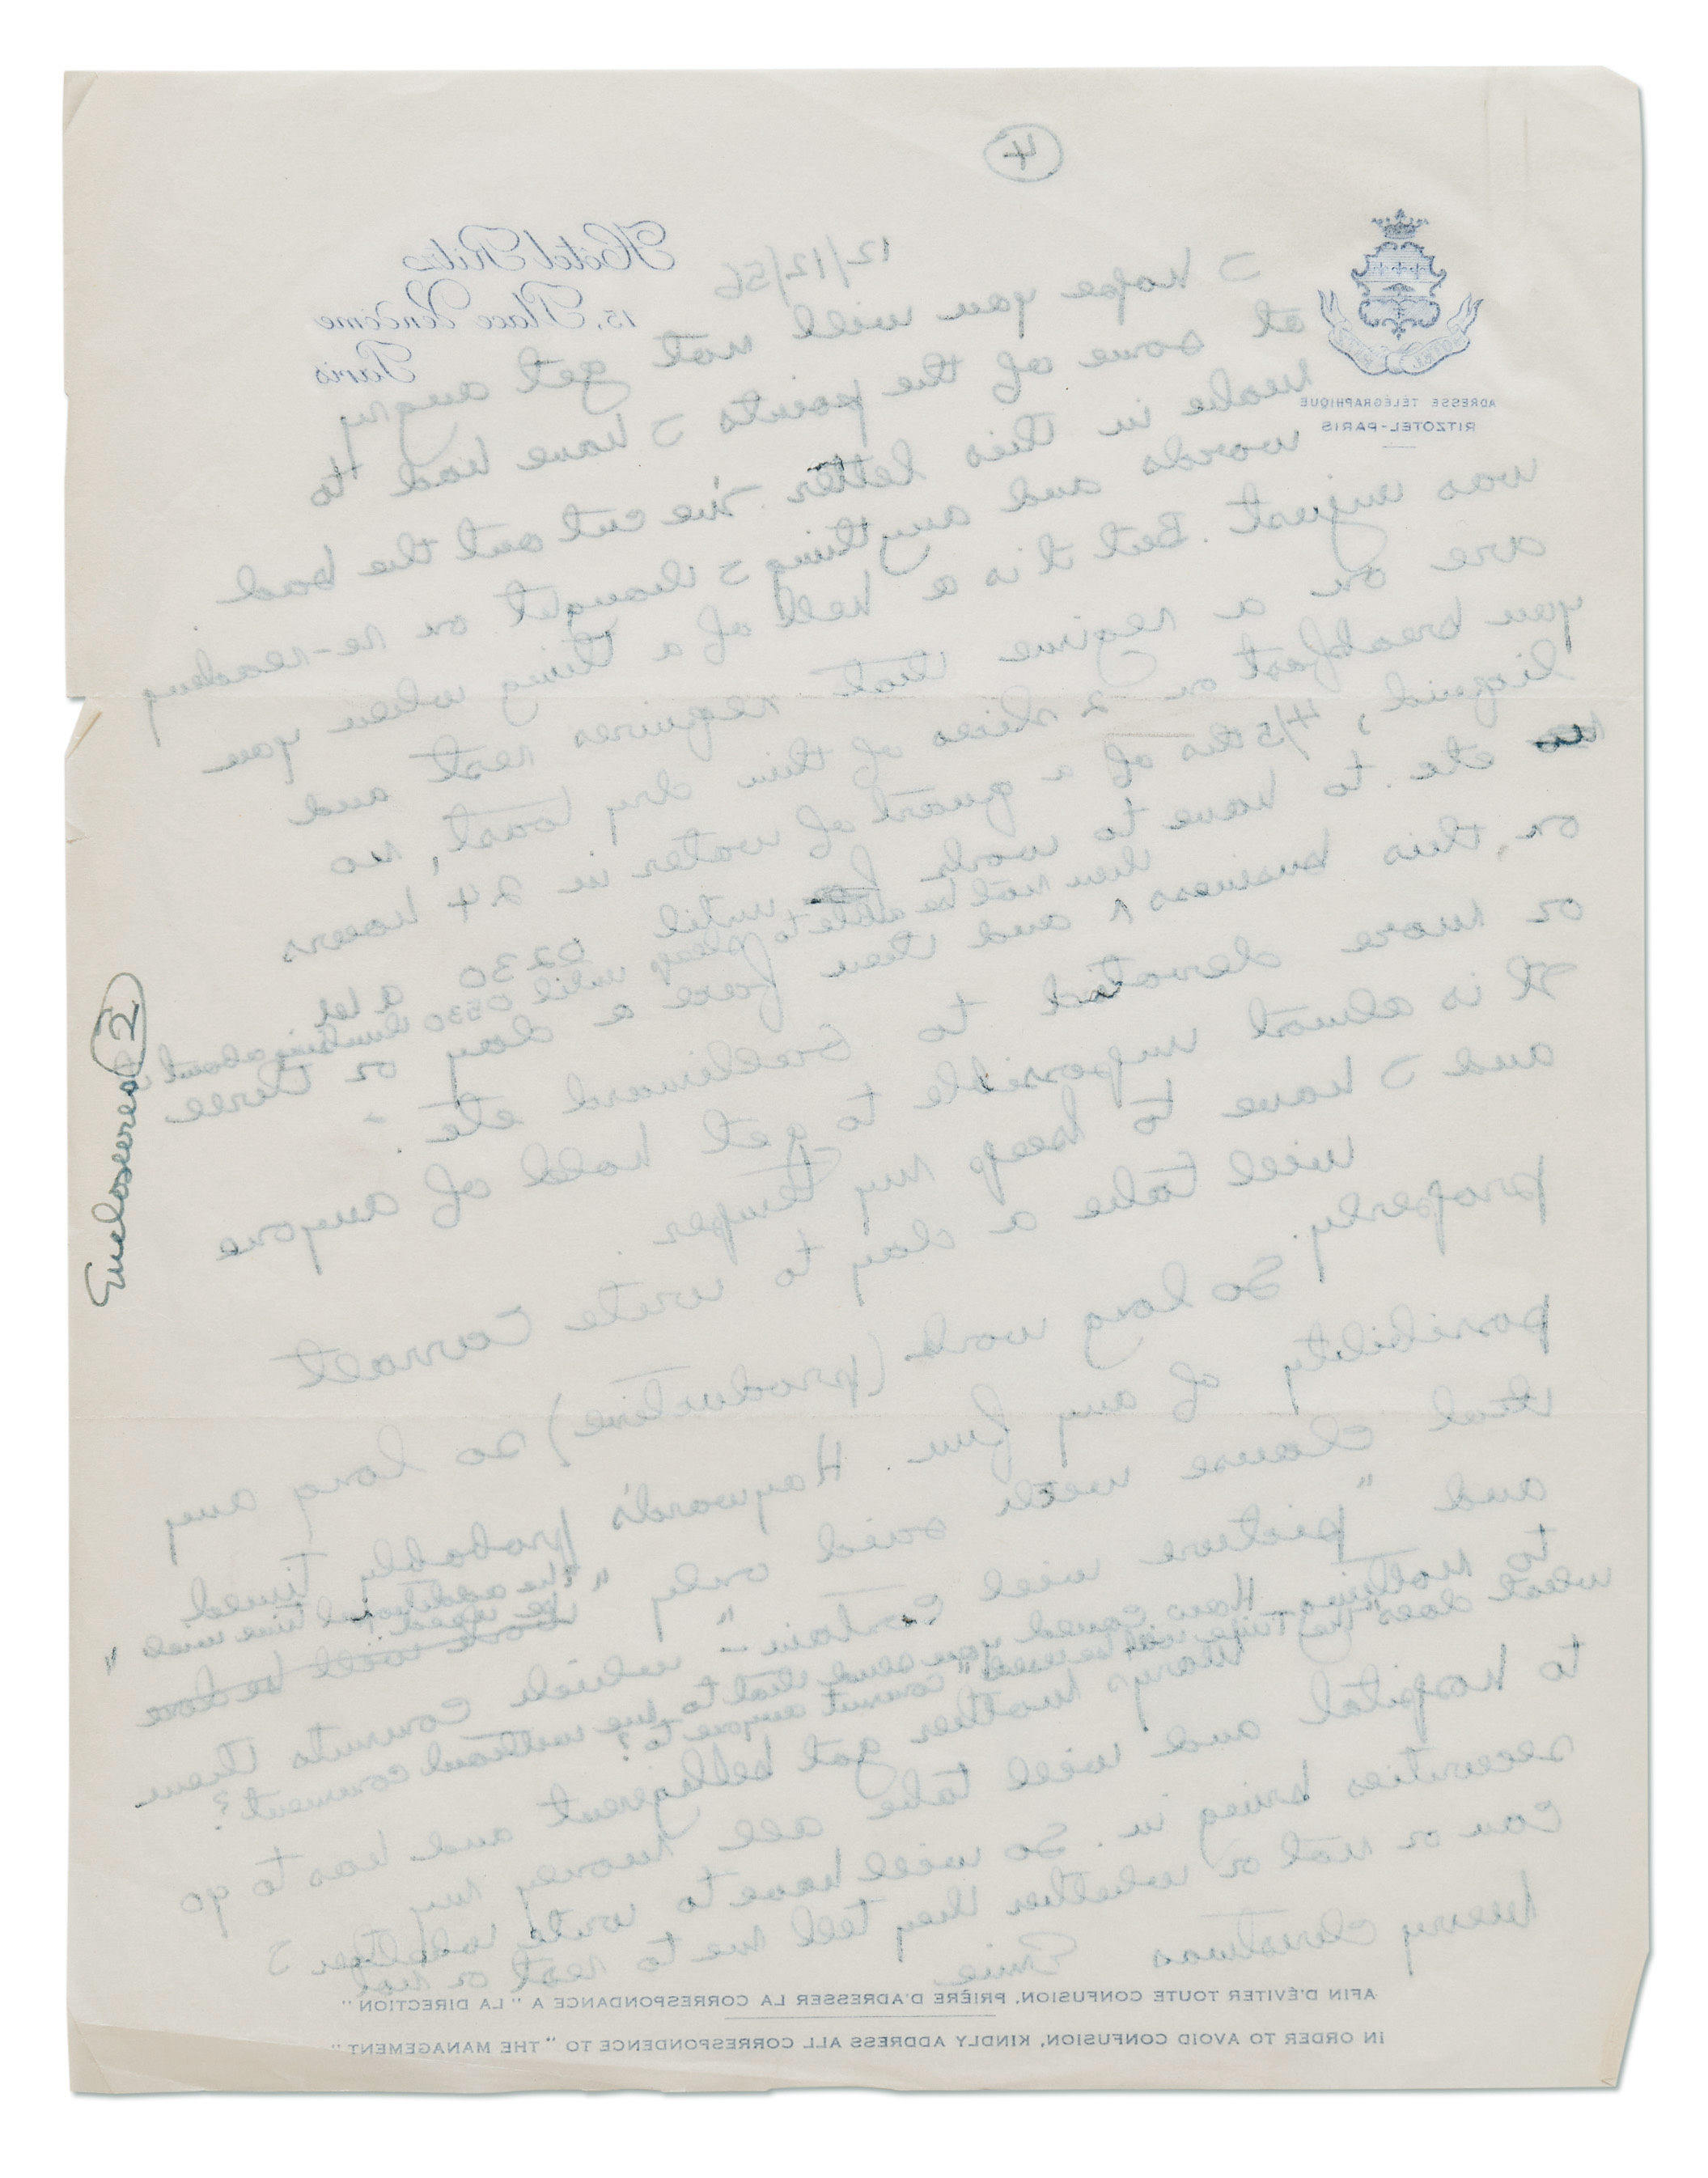 4
Hôtel Ritz
15, Place Vendôme
Paris
ADRESSE TÉLÉGRAPHIQUE
RITZOTEL-PARIS
12/12/56
I hope you will not get angry
at some of the points I have had to
make in this letter. I've cut out the bad
words and anything I thought on re-reading
was unjust. But it is a hell of a thing when you
are on a regime that requires rest and
you breakfast on 2 slices of thin dry toast, no
liquid, 4/5ths of a quart of water in 24 hours
etc. to have to work until 0230 a let
then not be able to sleep until 0530 thinking about it
on, this business ^ and then face a day or three
or more devoted to Bellimard etc. -
It is almost impossible to get hold of anyone
and I have to keep my temper.
will take a day to write Carroll
properly.
So long work (productive) so long any
possibility of any fun. Hayward's probably tired
that clause well said only "the additional time will
be used
more will be done "
and "picture will contain" - which commits them
to nothing. How could you send that to me without comment?
What does "The Time will be used" commit anyone to?
Mary's mother got belligerent and has to go
to hospital and will take all money my
securities bring in. So will have to write whether I
can or not or whether they tell me to rest or not
Merry Christmas Ernie
AFIN D'ÉVITER TOUTE CONFUSION, PRIÈRE D'ADRESSER LA CORRESPONDANCE A "LA DIRECTION"
IN ORDER TO AVOID CONFUSION, KINDLY ADDRESS ALL CORRESPONDENCE TO "THE MANAGEMENT"
Enclosured 2